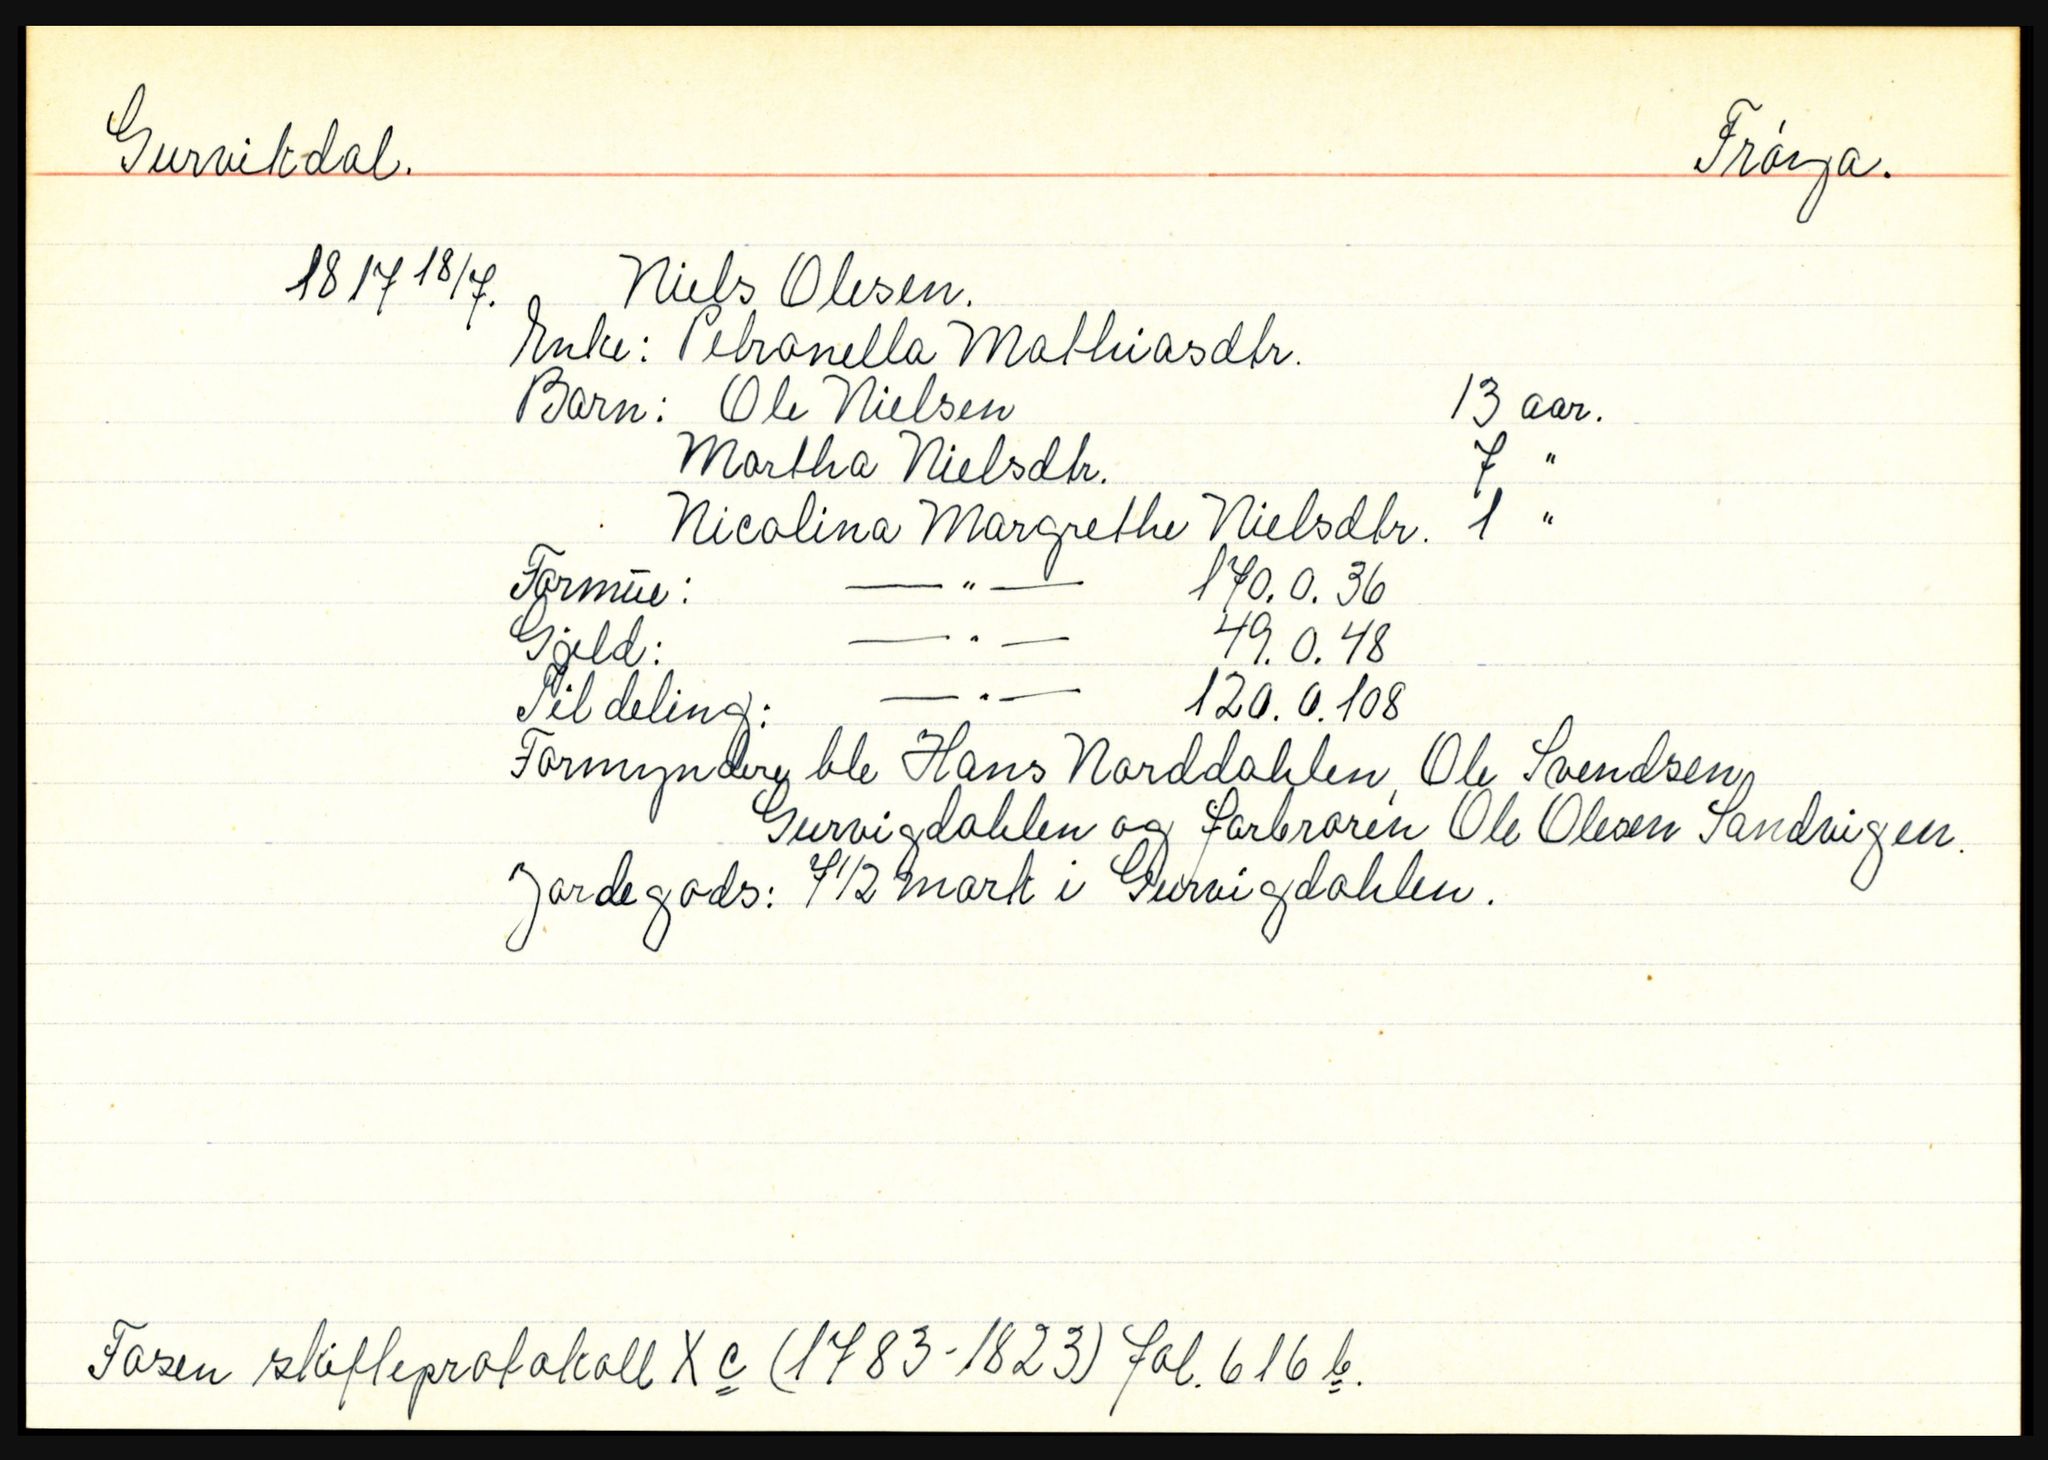 Gurvikdal. Frøya.
1817 18/7. Niels Olesen.
Enke: Petronella Mathiasdtr.
Barn: Ole Nielsen 13 aar.
Martha Nielsdtr. 7 "
Nicolina Margrethe Nielsdtr. 1 "
Formue: — " — 170. 0. 36
Gjeld: — " — 49. 0. 48
Til deling: — " — 120. 0. 108
Formyndere ble Hans Norddahlen, Ole Svendsen
Gurvigdahlen og farbroren Ole Olesen Sandvigen.
Jordegods: 7 1/2 mark i Gurvigdahlen.
Fosen skifteprotokoll X c (1783-1823) fol. 616 b.